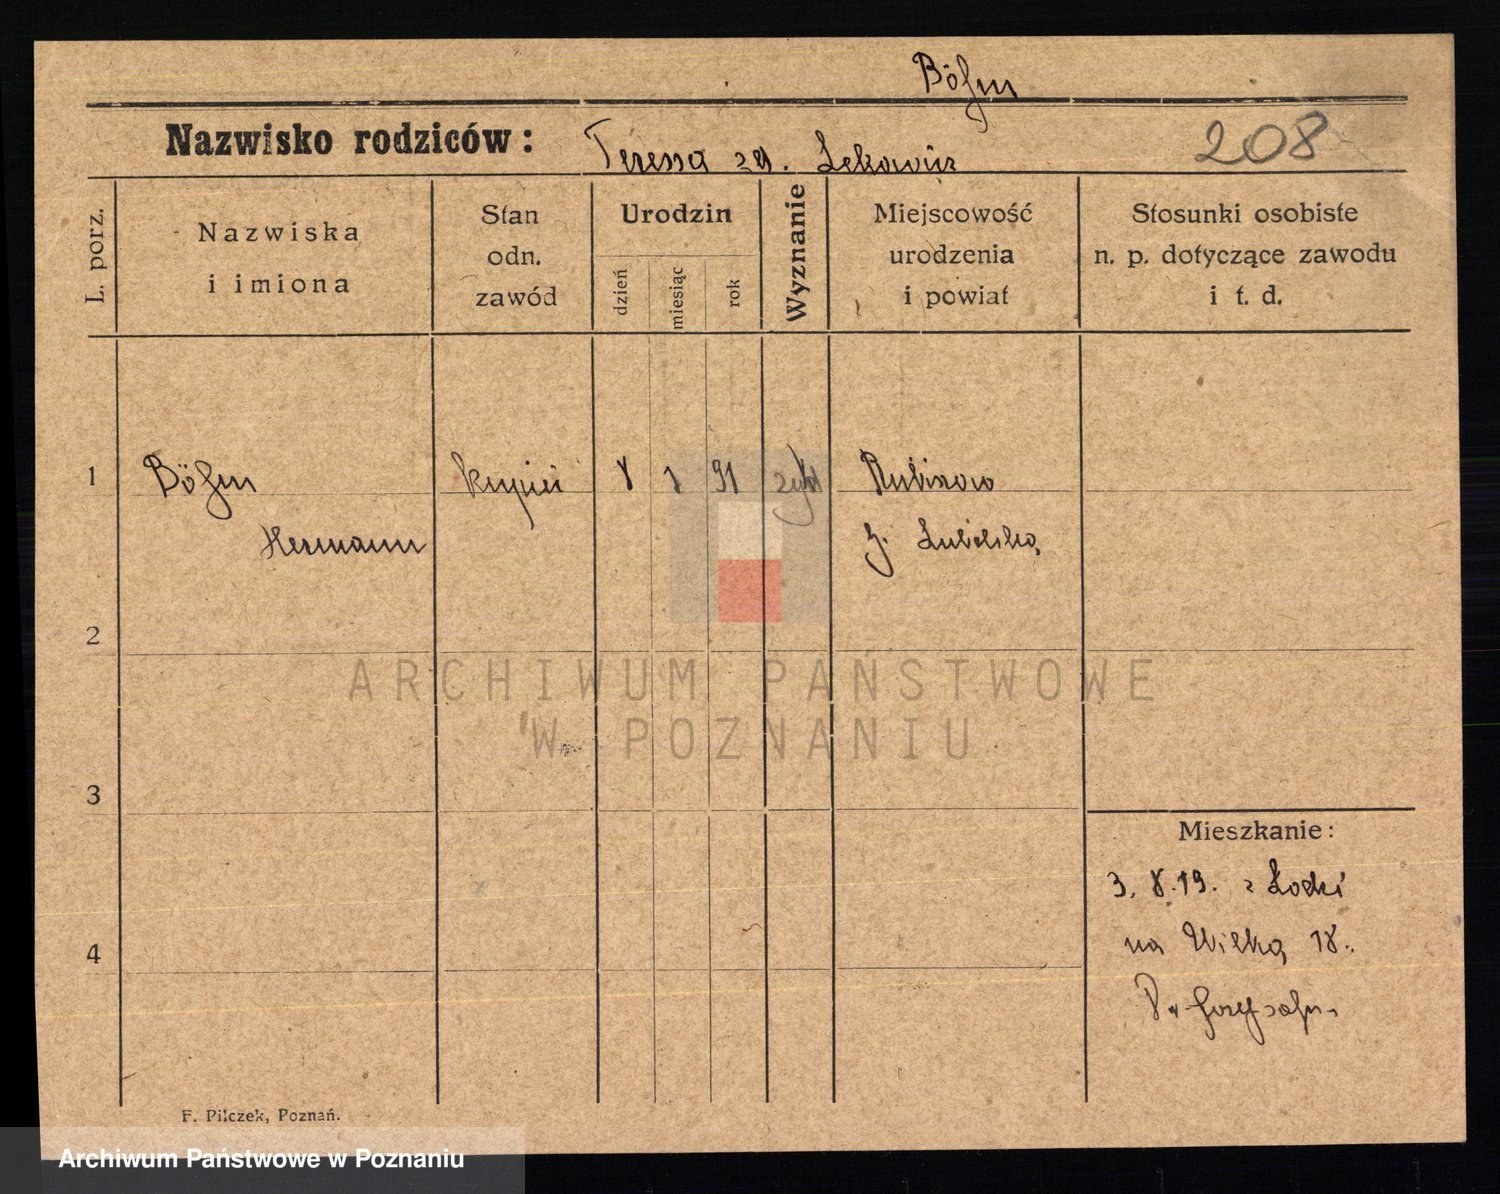 Böhm
Nazwisko rodziców: Teressa
208
L. porz.
Nazwiska
i imiona
Stan
odn.
zawód
Urodzin
dzień
miesiąc
rok
Wyznanie
Miejscowość
urodzenia
i powiat
Stosunki osobiste
n. p. dotyczące zawodu
i t. d.
1
Böhm
Hermann
kupiec
8
1
91
g. Lubelska
2
3
4
Mieszkanie:
3. 8. 19. z Łodzi
na Wielką 18.
F. Pilczek, Poznań.
ARCHIWUM PAŃSTWOWE
W POZNANIU
Archiwum Państwowe w Poznaniu